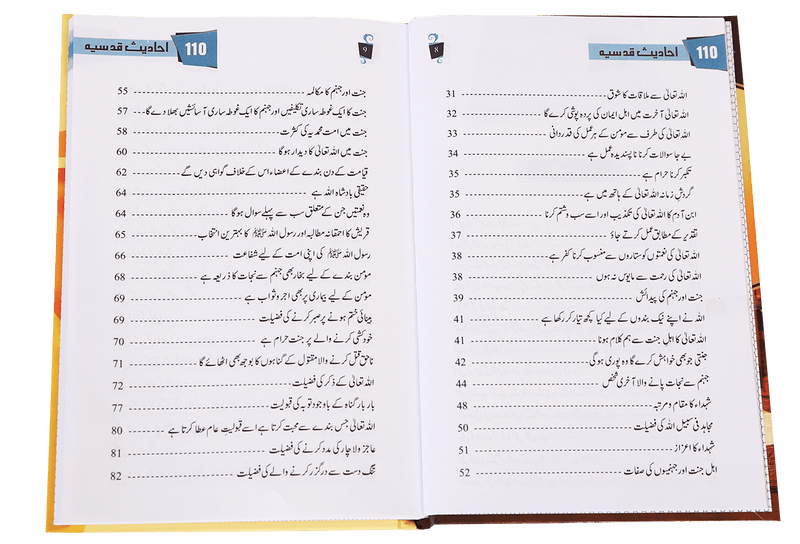 110 احادیث قدسیہ
8
اللہ تعالیٰ سے ملاقات کا شوق 31
اللہ تعالیٰ آخرت میں اہل ایمان کی پردہ پوشی کرے گا 32
اللہ تعالیٰ کی طرف سے مؤمن کے ہر عمل کی قدردانی 33
بے جا سوالات کرنا ناپسندیدہ عمل ہے 34
تکبر کرنا حرام ہے 35
گردش زمانہ اللہ تعالیٰ کے ہاتھ میں ہے 35
ابن آدم کا اللہ تعالیٰ کی تکذیب اور اسے سب و شتم کرنا 36
تقدیر کے مطابق عمل کرتے جاؤ 37
اللہ تعالیٰ کی نعمتوں کو ستاروں سے منسوب کرنا کفر ہے 38
اللہ تعالیٰ کی رحمت سے مایوس نہ ہوں 38
جنت اور جہنم کی پیدائش 39
اللہ نے اپنے نیک بندوں کے لیے کیا کچھ تیار کر رکھا ہے 41
اللہ تعالیٰ کا اہل جنت سے ہم کلام ہونا 41
جنتی جو بھی خواہش کرے گا وہ پوری ہوگی 42
جہنم سے نجات پانے والا آخری شخص 44
شہداء کا مقام و مرتبہ 48
مجاہد فی سبیل اللہ کی فضیلت 50
شہداء کا اعزاز 51
اہل جنت اور جہنمیوں کی صفات 52
110 احادیث قدسیہ
9
جنت اور جہنم کا مکالمہ 55
جنت کا ایک غوطہ ساری تکلیفیں اور جہنم کا ایک غوطہ ساری آسائشیں بھلا دے گا 57
جنت میں امت محمدیہ کی کثرت 58
جنت میں اللہ تعالیٰ کا دیدار ہوگا 60
قیامت کے دن بندے کے اعضاء اس کے خلاف گواہی دیں گے 62
حقیقی بادشاہ اللہ ہے 64
وہ نعمتیں جن کے متعلق سب سے پہلے سوال ہوگا 64
قریش کا احمقانہ مطالبہ اور رسول اللہ ﷺ کا بہترین انتخاب 65
رسول اللہ ﷺ کی اپنی امت کے لیے شفاعت 66
مؤمن بندے کے لیے بخار بھی جہنم سے نجات کا ذریعہ ہے 68
مؤمن کے لیے بیماری پر بھی اجر و ثواب ہے 69
بینائی ختم ہونے پر صبر کرنے کی فضیلت 69
خودکشی کرنے والے پر جنت حرام ہے 70
ناحق قتل کرنے والا مقتول کے گناہوں کا بوجھ بھی اٹھائے گا 71
اللہ تعالیٰ کے ذکر کی فضیلت 72
بار بار گناہ کے باوجود توبہ کی قبولیت 77
اللہ تعالیٰ جس بندے سے محبت کرتا ہے اسے قبولیت عام عطا کرتا ہے 80
عاجز و لاچار کی مدد کرنے کی فضیلت 81
تنگ دست سے درگزر کرنے والے کی فضیلت 82